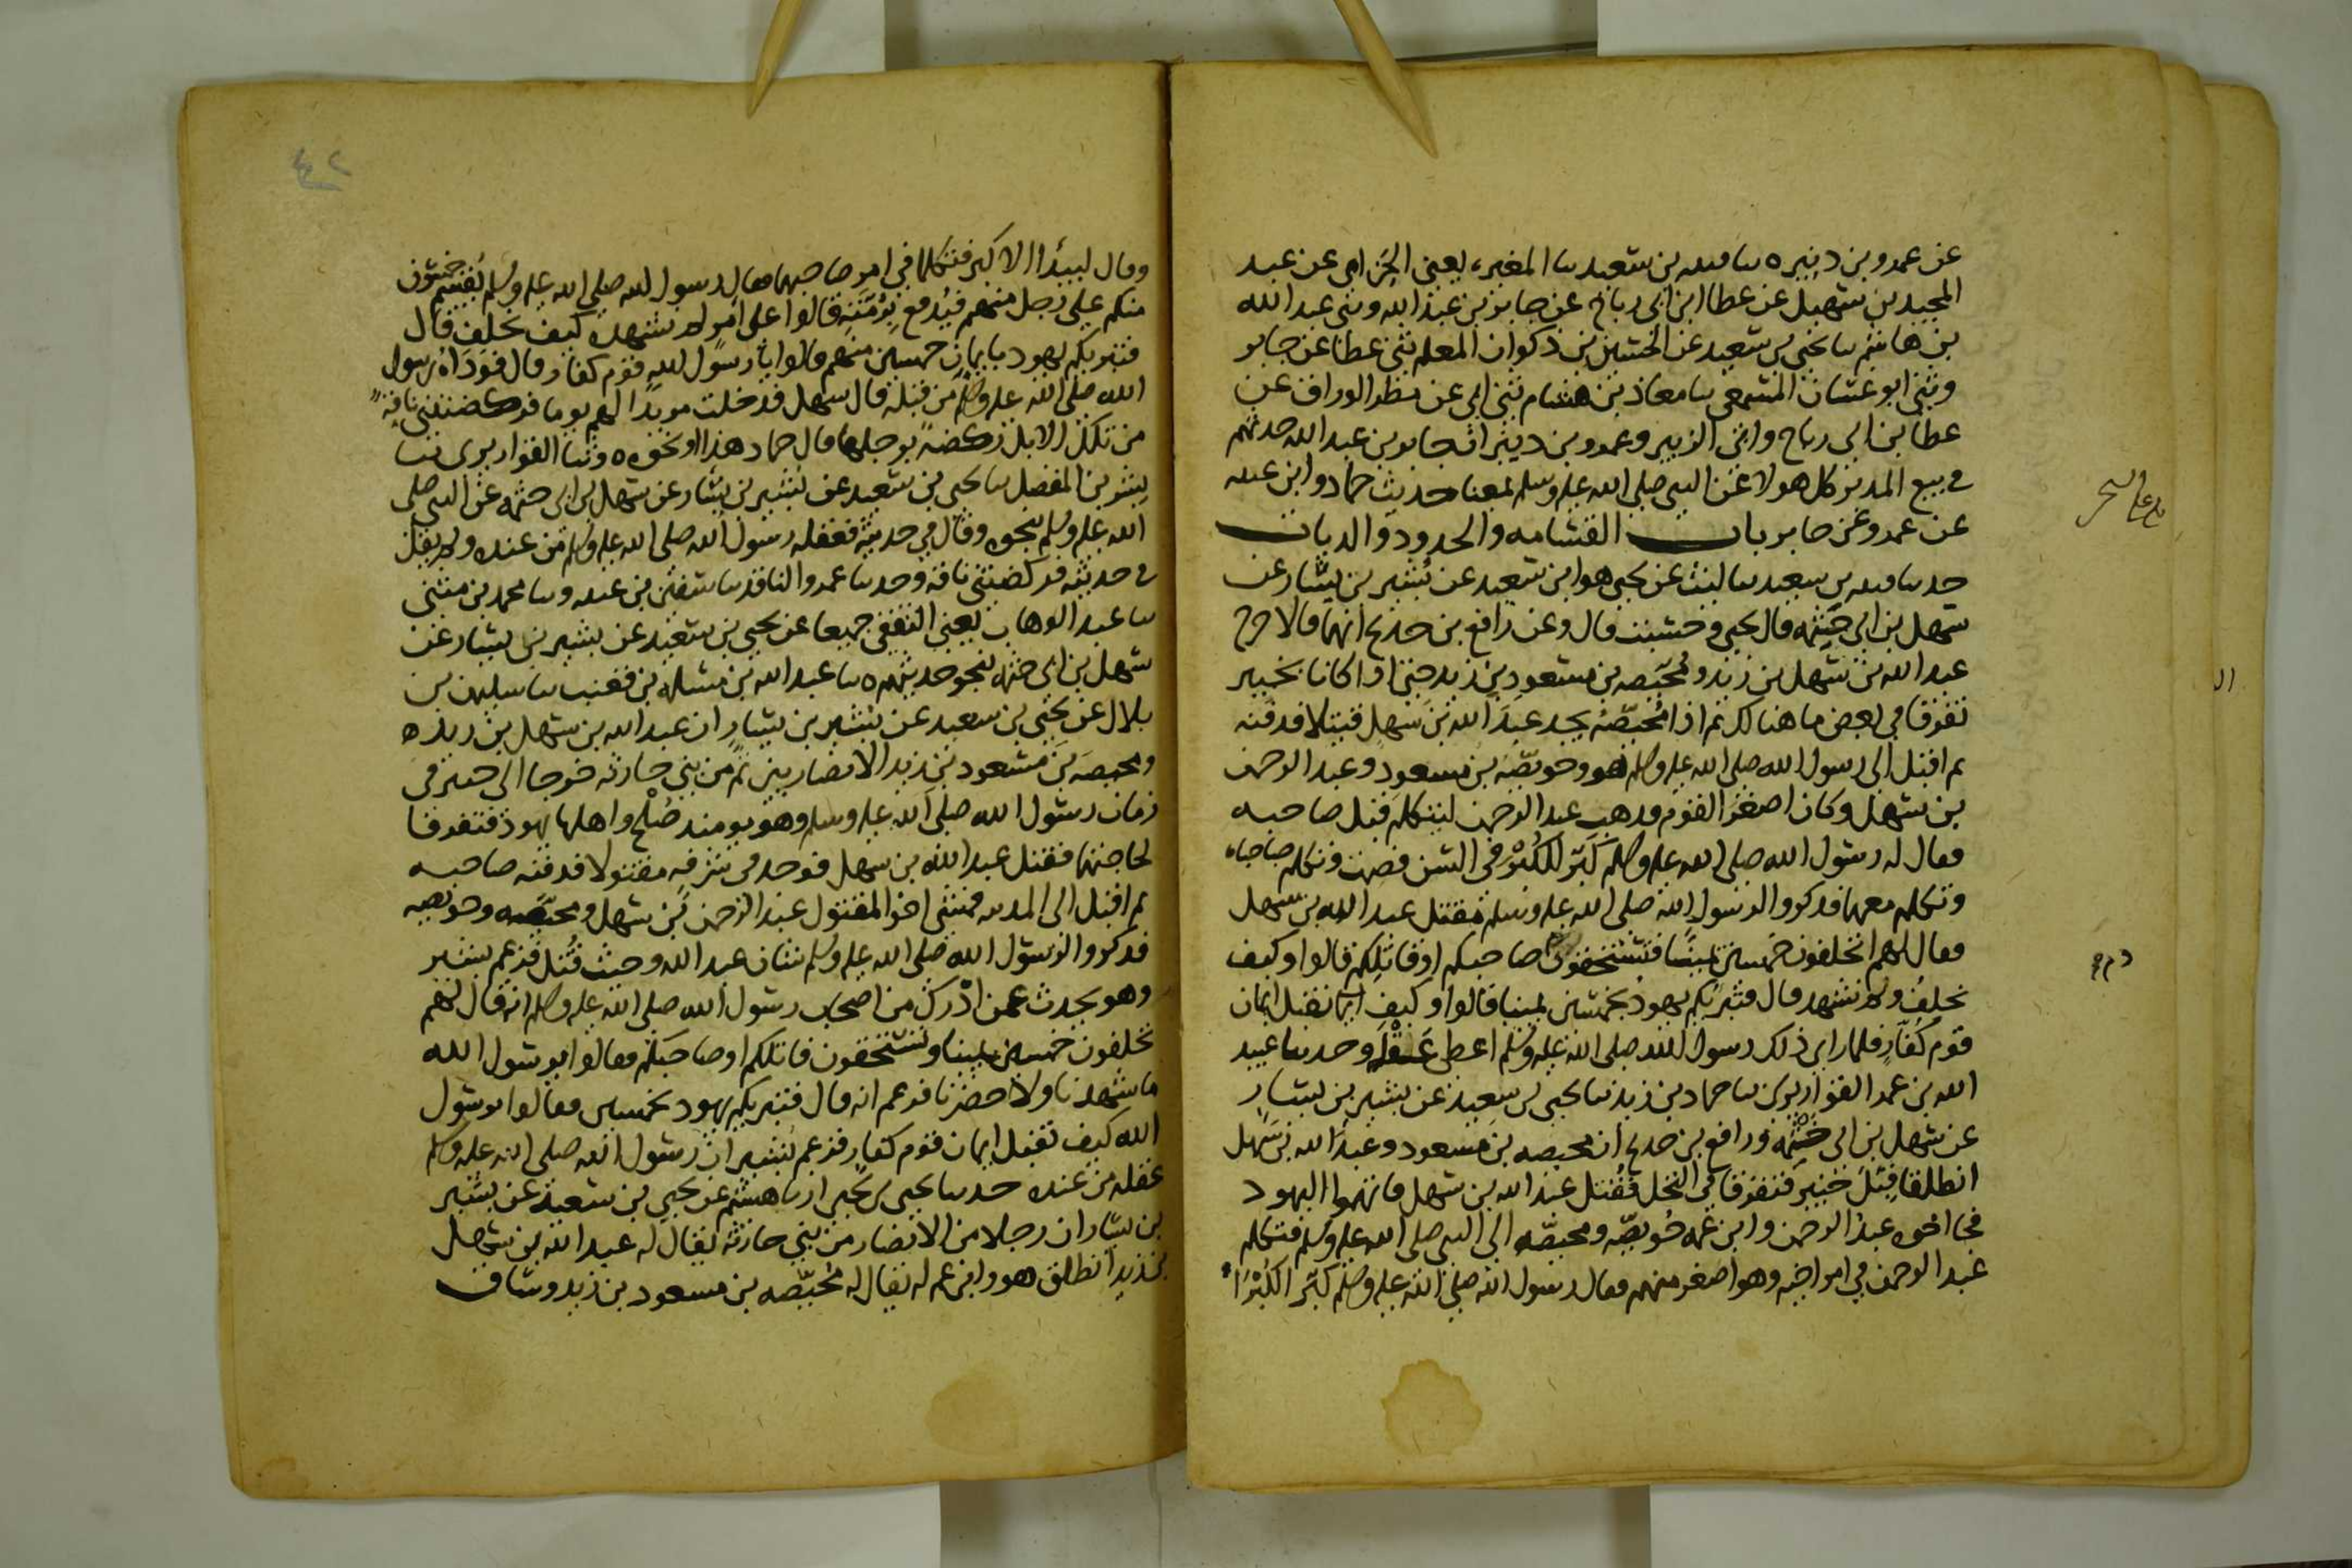 عن عمرو بن دينر ه سا قتيبه بن سعيد سا المغيره يعني الحزامي عن عبد
المجيد بن سهيل عن عطا ابن ابي رباح عن جابر بن عبد الله وثني عبد الله
بن هاشم سا يحيى بن سعيد عن الحسين بن ذكوان المعلم ثني عطا عن جابر
وثني ابو غسان المسمعي سا معاذ بن هشام ثني ابي عن مطر الوراق عن
عطا بن ابي رباح وابي الزبير وعمرو بن دينر ان جابر بن عبد الله حدثهم
في بيع المدبر كل هولا عن النبي صلى الله عليه وسلم بمعنا حديث حماد وابن عيينه
عن عمرو عن جابر باب القسامه والحدود والديات
حدسا قتيبه بن سعيد سا ليث عن يحيى هو ابن سعيد عن بُشير بن يسار عن
سهل بن ابي حثمه قال يحيى وحسبت قال وعن رافع بن خديج انهما قالا خرج
عبد الله بن سهل بن زيد ومُحيّصه بن مسعود بن زيد حتى اذا كانا بخيبر
تفرقا في بعض ما هنالك ثم اذا مُحيّصه يجد عبدَ الله بن سهل قتيلا فدفنه
ثم اقبل الى رسول الله صلى الله عليه وسلم هو وحويّصه بن مسعود وعبد الرحمن
بن سهل وكان اصغرَ القوم فذهب عبد الرحمن ليتكلم قبل صاحبه
فقال له رسول الله صلى الله عليه وسلم كَبّر للكُبْر في السن فصمت وتكلم صاحباه
وتكلم معهما فذكروا لرسول الله صلى الله عليه وسلم مقتل عبد الله بن سهل
فقال لهم اتحلفون خمسين يمينًا فتستحقون صاحبكم او قاتلكم قالوا وكيف
نحلفُ ولم نشهد قال فتبرّيكم يهودُ بخمسين يمينا قالوا وكيف نقبل ايمان
قوم كفّارٍ فلما راى ذلك رسول الله صلى الله عليه وسلم اعطى عَقْلَه وحدسا عبيد
الله بن عمر القواريري سا حماد بن زيد سا يحيى بن سعيد عن بشير بن يسار
عن سهل بن ابي حثمه ورافع بن خديج ان محيصه بن مسعود وعبدَ الله بن سهل
انطلقا قِبَلَ خيبر فتفرقا في النخل فقُتل عبد الله بن سهل فاتهموا اليهود
فجا اخوه عبدُ الرحمن وابن عمه حُويصّه ومحيصّه الى النبي صلى الله عليه وسلم فتكلم
عبد الرحمن في امر اخيه وهو اصغر منهم فقال رسول الله صلى الله عليه وسلم كبّر الكُبْرَ
وقال ليبدأ الاكبر فتكلما في امر صاحبهما فقال رسول الله صلى الله عليه وسلم يُقسم خمسون
منكم على رجل منهم فيُدفع برُمّتِه قالوا على امرٍ لم نشهده كيف نحلف قال
فتبريكم يهود بايمانِ خمسين منهم قالوا يا رسول الله قوم كفار قال فوَدَاهُ رسول
الله صلى الله عليه وسلم من قبله قال سهل فدخلت مربدا لهم يوما فركضتني ناقةٌ
من تلك الابل ركضةً برجلها قال حماد هذا او نحوه ه وثنا القواريري نا
بشر بن المفضل سا يحيى بن سعيد عن بُشير بن يسار عن سهل بن ابي حثمه عن النبي صلى
الله عليه وسلم بنحوه وقال في حديثه فعقله رسول الله صلى الله عليه وسلم من عنده ولم يقل
في حديثه فركضتني ناقه وحدسا عمرو الناقد سا سفين بن عيينه وسا محمد بن مثنى
سا عبد الوهاب يعني الثقفي جميعا عن يحيى بن سعيد عن بشير بن يسار عن
سهل بن ابي حثمه بنحو حديثهم ه سا عبد الله بن مسلمه بن قعنب سا سليمن بن
بلال عن يحيى بن سعيد عن بُشير بن يسارٍ ان عبد الله بن سهل بن زيد
ومحيصه بن مسعود بن زيد الانصاريين ثم من بني حارثه خرجا الى خيبر في
زمان رسول الله صلى الله عليه وسلم وهو يومئذ صُلْح واهلها يهود فتفرقا
لحاجتهما فقتل عبد الله بن سهل فوجد في شَرَبه مقتولا فدفنه صاحبه
ثم اقبل الى المدينه فمشى اخو المقتول عبد الرحمن بن سهل ومحيّصه وحويصه
فذكروا لرسول الله صلى الله عليه وسلم شان عبد الله وحيث قُتل فزعم بشير
وهو يحدث عمن ادْرك من اصحاب رسول الله صلى الله عليه وسلم انه قال لهم
تحلفون خمسين يمينا وتستحقون قاتلكم او صاحبكم فقالوا يرسول الله
ما شهدنا ولا حضرنا فزعم انه قال فتبريكم يهود بخمسين فقالوا يرسول
الله كيف نقبل ايمان قوم كفار فزعم بُشير ان رسول الله صلى الله عليه وسلم
عقله من عنده حدسا يحيى بن يحيى انا هشيم عن يحيى بن سعيد عن بشير
بن يسار ان رجلا من الانصار من بني حارثه يقال له عبد الله بن سهل
بن زيد انطلق هو وابن عم له يقال له مُحيّصه بن مسعود بن زيد وساق